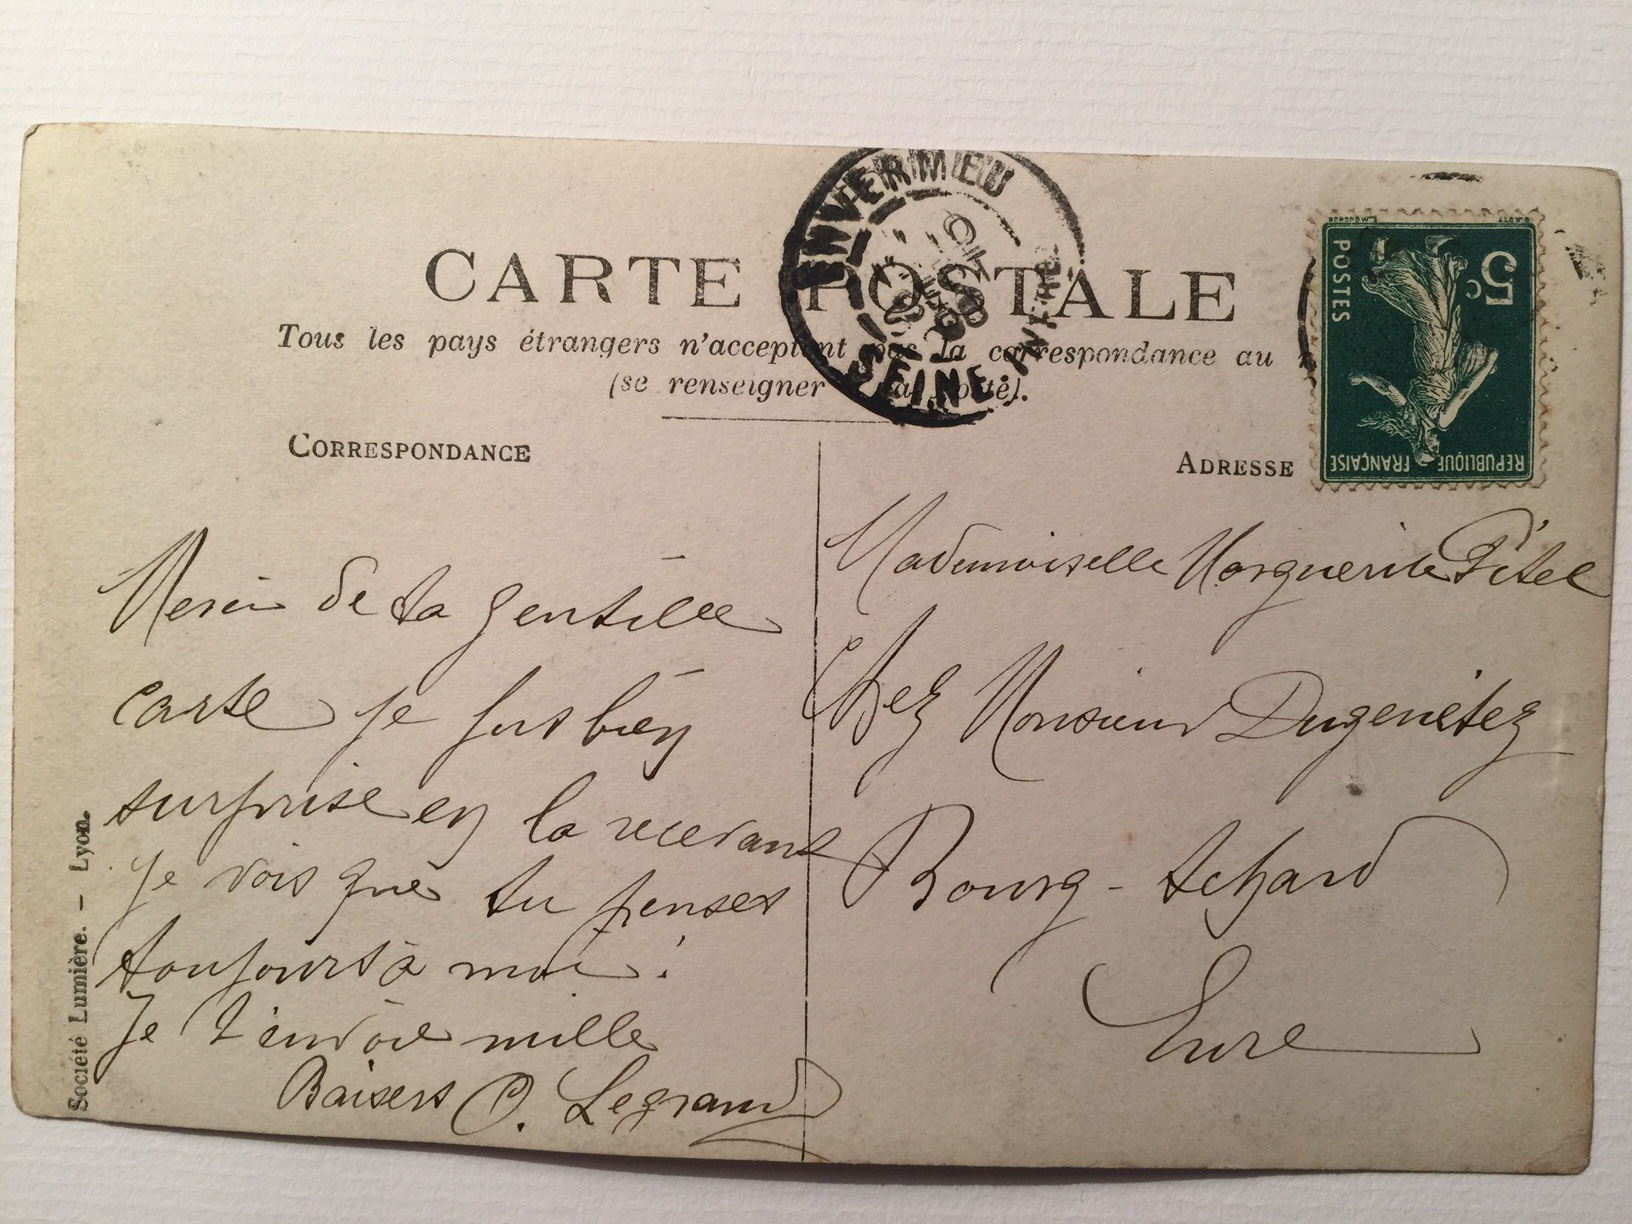 CARTE POSTALE
Tous les pays étrangers n'acceptent pas la correspondance au
(se renseigner à la poste).
ENVERMEU
SEINE-INFRE
08
POSTES
5c
REPUBLIQUE FRANÇAISE
CORRESPONDANCE
ADRESSE
Merci de ta gentille
carte je fus bien
surprise en la recevant
je vois que tu penses
toujours à moi !
Je t'envoie mille
Baisers O. Legrand
Mademoiselle Marguerite Pitel
Chez Monsieur Dugenétez
Bourg-Achard
Eure
Société Lumière. — Lyon.